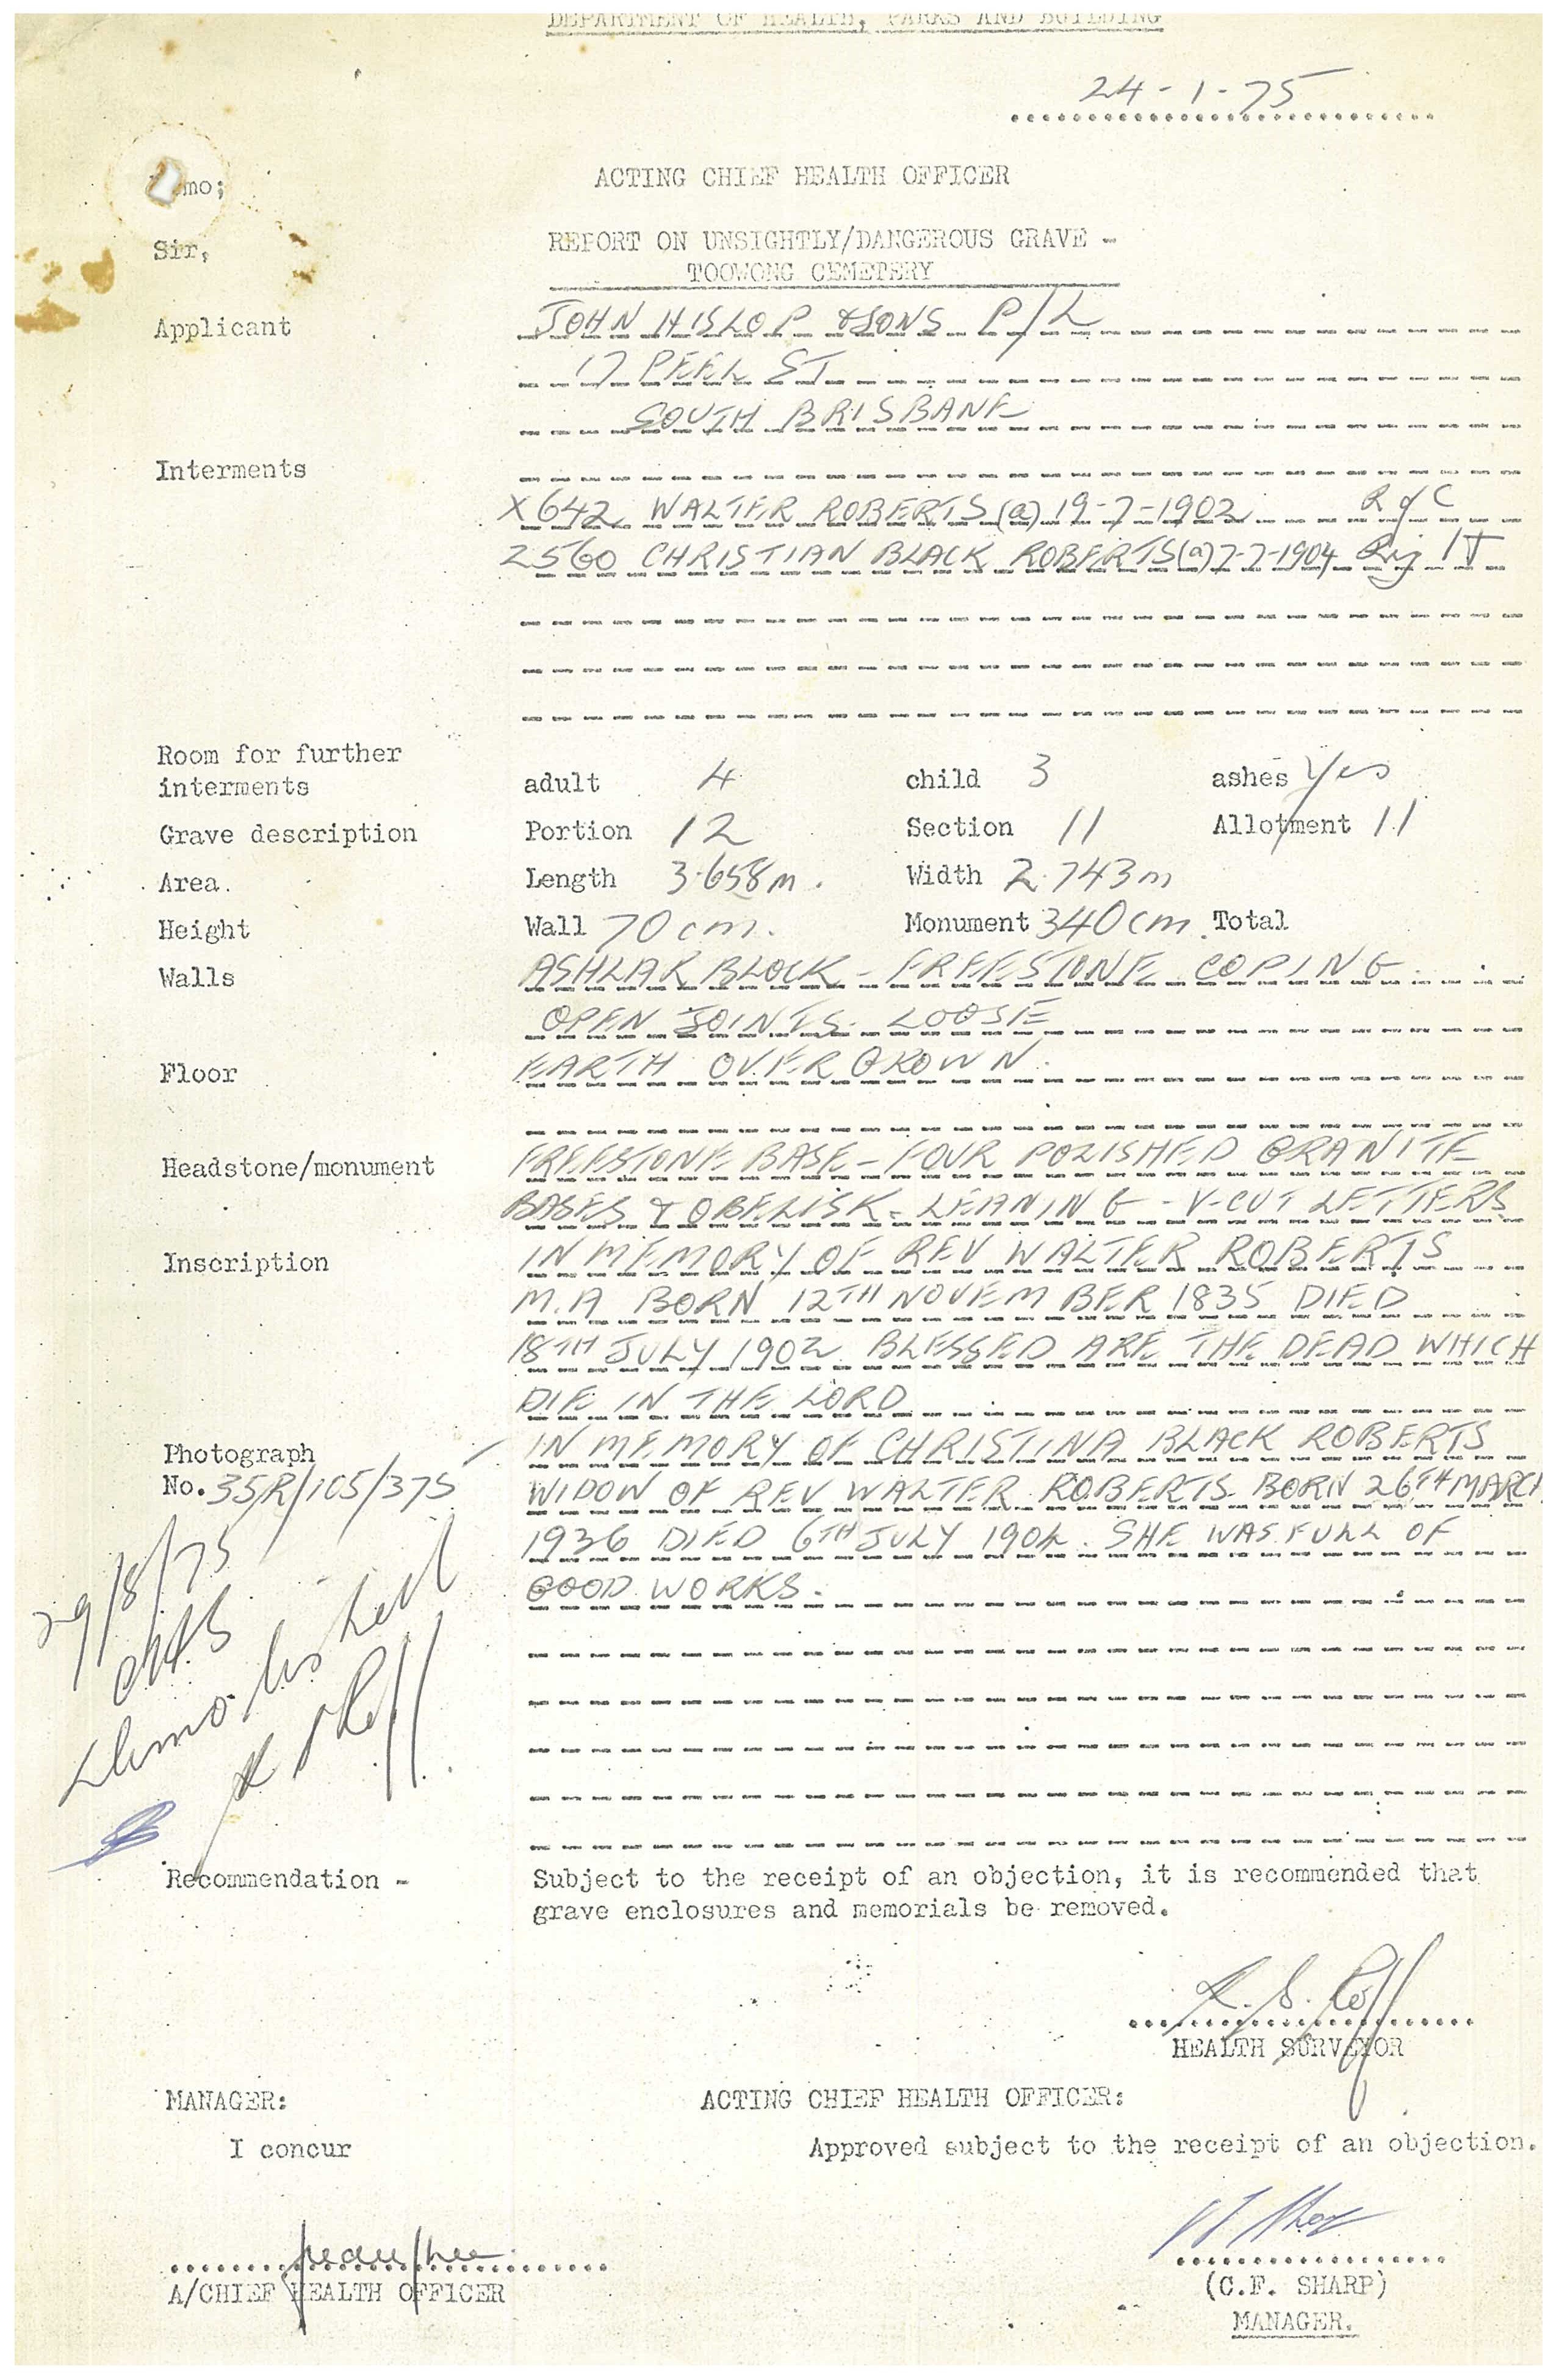 DEPARTMENT OF HEALTH, PARKS AND BUILDING
24-1-75
ACTING CHIEF HEALTH OFFICER
mo;
Sir,
REPORT ON UNSIGHTLY/DANGEROUS GRAVE -
TOOWONG CEMETERY
Applicant JOHN HISLOP & SONS P/L
17 PEEL ST
SOUTH BRISBANE
Interments
X642 WALTER ROBERTS (a) 19-7-1902 R of C
2560 CHRISTIAN BLACK ROBERTS (a) 7-7-1904 Rig IT
Room for further
interments adult 4 child 3 ashes Yes
Grave description Portion 12 Section 11 Allotment 11
Area. Length 3.658m. Width 2.743m
Height Wall 70cm. Monument 340cm. Total
Walls ASHLAR BLOCK - FREESTONE COPING
OPEN JOINTS. LOOSE
Floor EARTH OVERGROWN.
Headstone/monument FREESTONE BASE - FOUR POLISHED GRANITE
BASES & OBELISK - LEANING - V-CUT LETTERS
Inscription IN MEMORY OF REV WALTER ROBERTS
M.A BORN 12TH NOVEMBER 1835 DIED
18TH JULY 1902. BLESSED ARE THE DEAD WHICH
DIE IN THE LORD
Photograph IN MEMORY OF CHRISTINA BLACK ROBERTS
No. 35R/105/375 WIDOW OF REV WALTER ROBERTS. BORN 26TH MARCH
1936 DIED 6TH JULY 1904. SHE WAS FULL OF
GOOD WORKS.
29/8/75
Demolished
Recommendation - Subject to the receipt of an objection, it is recommended that
grave enclosures and memorials be removed.
HEALTH SURVEYOR
MANAGER: ACTING CHIEF HEALTH OFFICER:
I concur Approved subject to the receipt of an objection.
A/CHIEF HEALTH OFFICER (C.F. SHARP)
MANAGER.